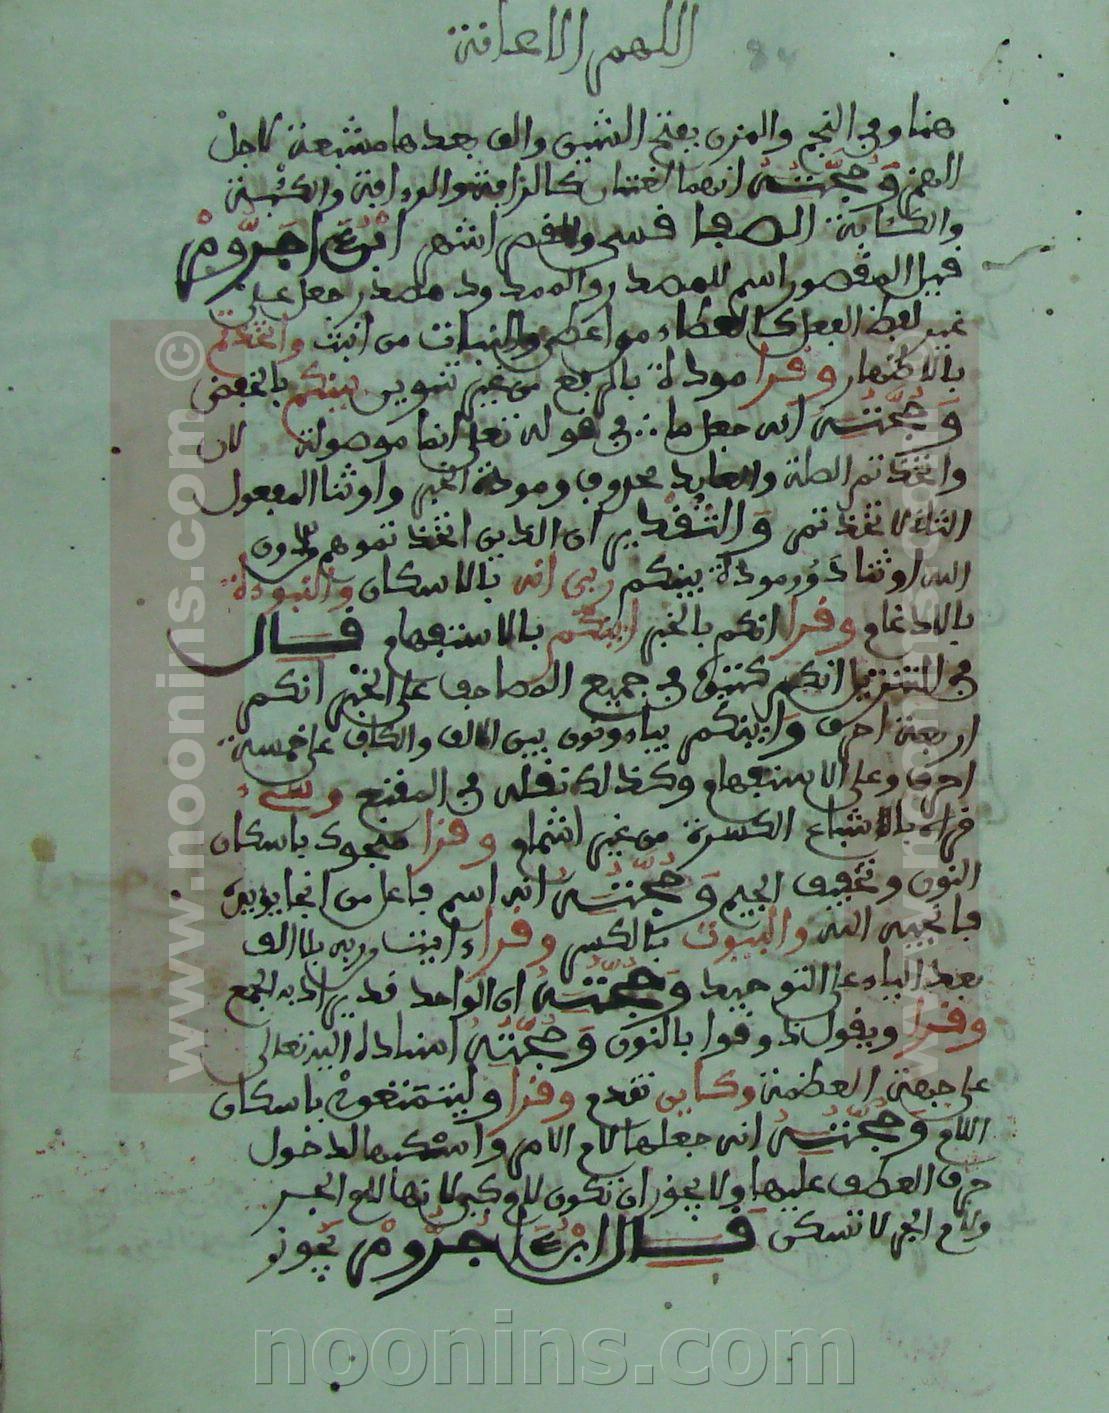 اللهم الاعانة
هنا وفي النجم والمزن بفتح الشين والف بعدها مشبعة لاجل
الهمز وحجته انهما لغتان كالرافة والرءافة والكئبة
والكئابة الصفا فسي والفصر اشهر ابن ءاجروم
فيل المفصور اسم للمصدر والممدود مصدر جعل على
غير لفظ الفعل كالعطاء من اعطى والنبات من انبت واتخذتم
بالاظهار وفرا مودة بالرفع من غير تنوين بينكم بالخفض
وحجته انه جعل ما في فوله تعلى انما موصولة لان
واتخذتم الصلة والعايد محذوف ومودة الخبر واوثنا المفعول
الثاني لاتخذتم والتفدير ان الذين اتخذتموهم من دون
الله اوثنا ذوو مودة بينكم ربي انه بالاسكان والنبوءة
بالادغام وفرا انكم بالخبر اينكم بالاستفهام فال
في التنزيل انكم كتبت في جميع المصاحف على الخبر انكم
اربعة احرف واينكم بياء ونون بين الالف والكاف على خمسة
احرف وعلى الاستفهام وكذلك نفله في المفنع وسيء
فراه بالاشباع الكسرة من غير اشمام وفرا منجوك باسكان
النون وتخفيف الجيم وحجته انه اسم فاعل من انجا يؤيده
فانجيه الله والبيوت بالكسر وفرا ءايت من ربه بلا الف
بعد الياء على التوحيد وحجته ان الواحد فد يراد به الجمع
وفرا ويفول ذوفوا بالنون وحجته اسناده اليه تعالى
على جهة العظمة وكاين تفدم وفرا وليتمتعوا باسكان
اللام وحجته انه جعلها لام الامر واسكنها لدخول
حرف العطف عليها ولا يجوز ان تكون لام كي لانها لام الجر
ولام الجر لا تسكن فال ابن ءاجروم يجوز
www.noonins.com ©
www.noonins.com ©
noonins.com